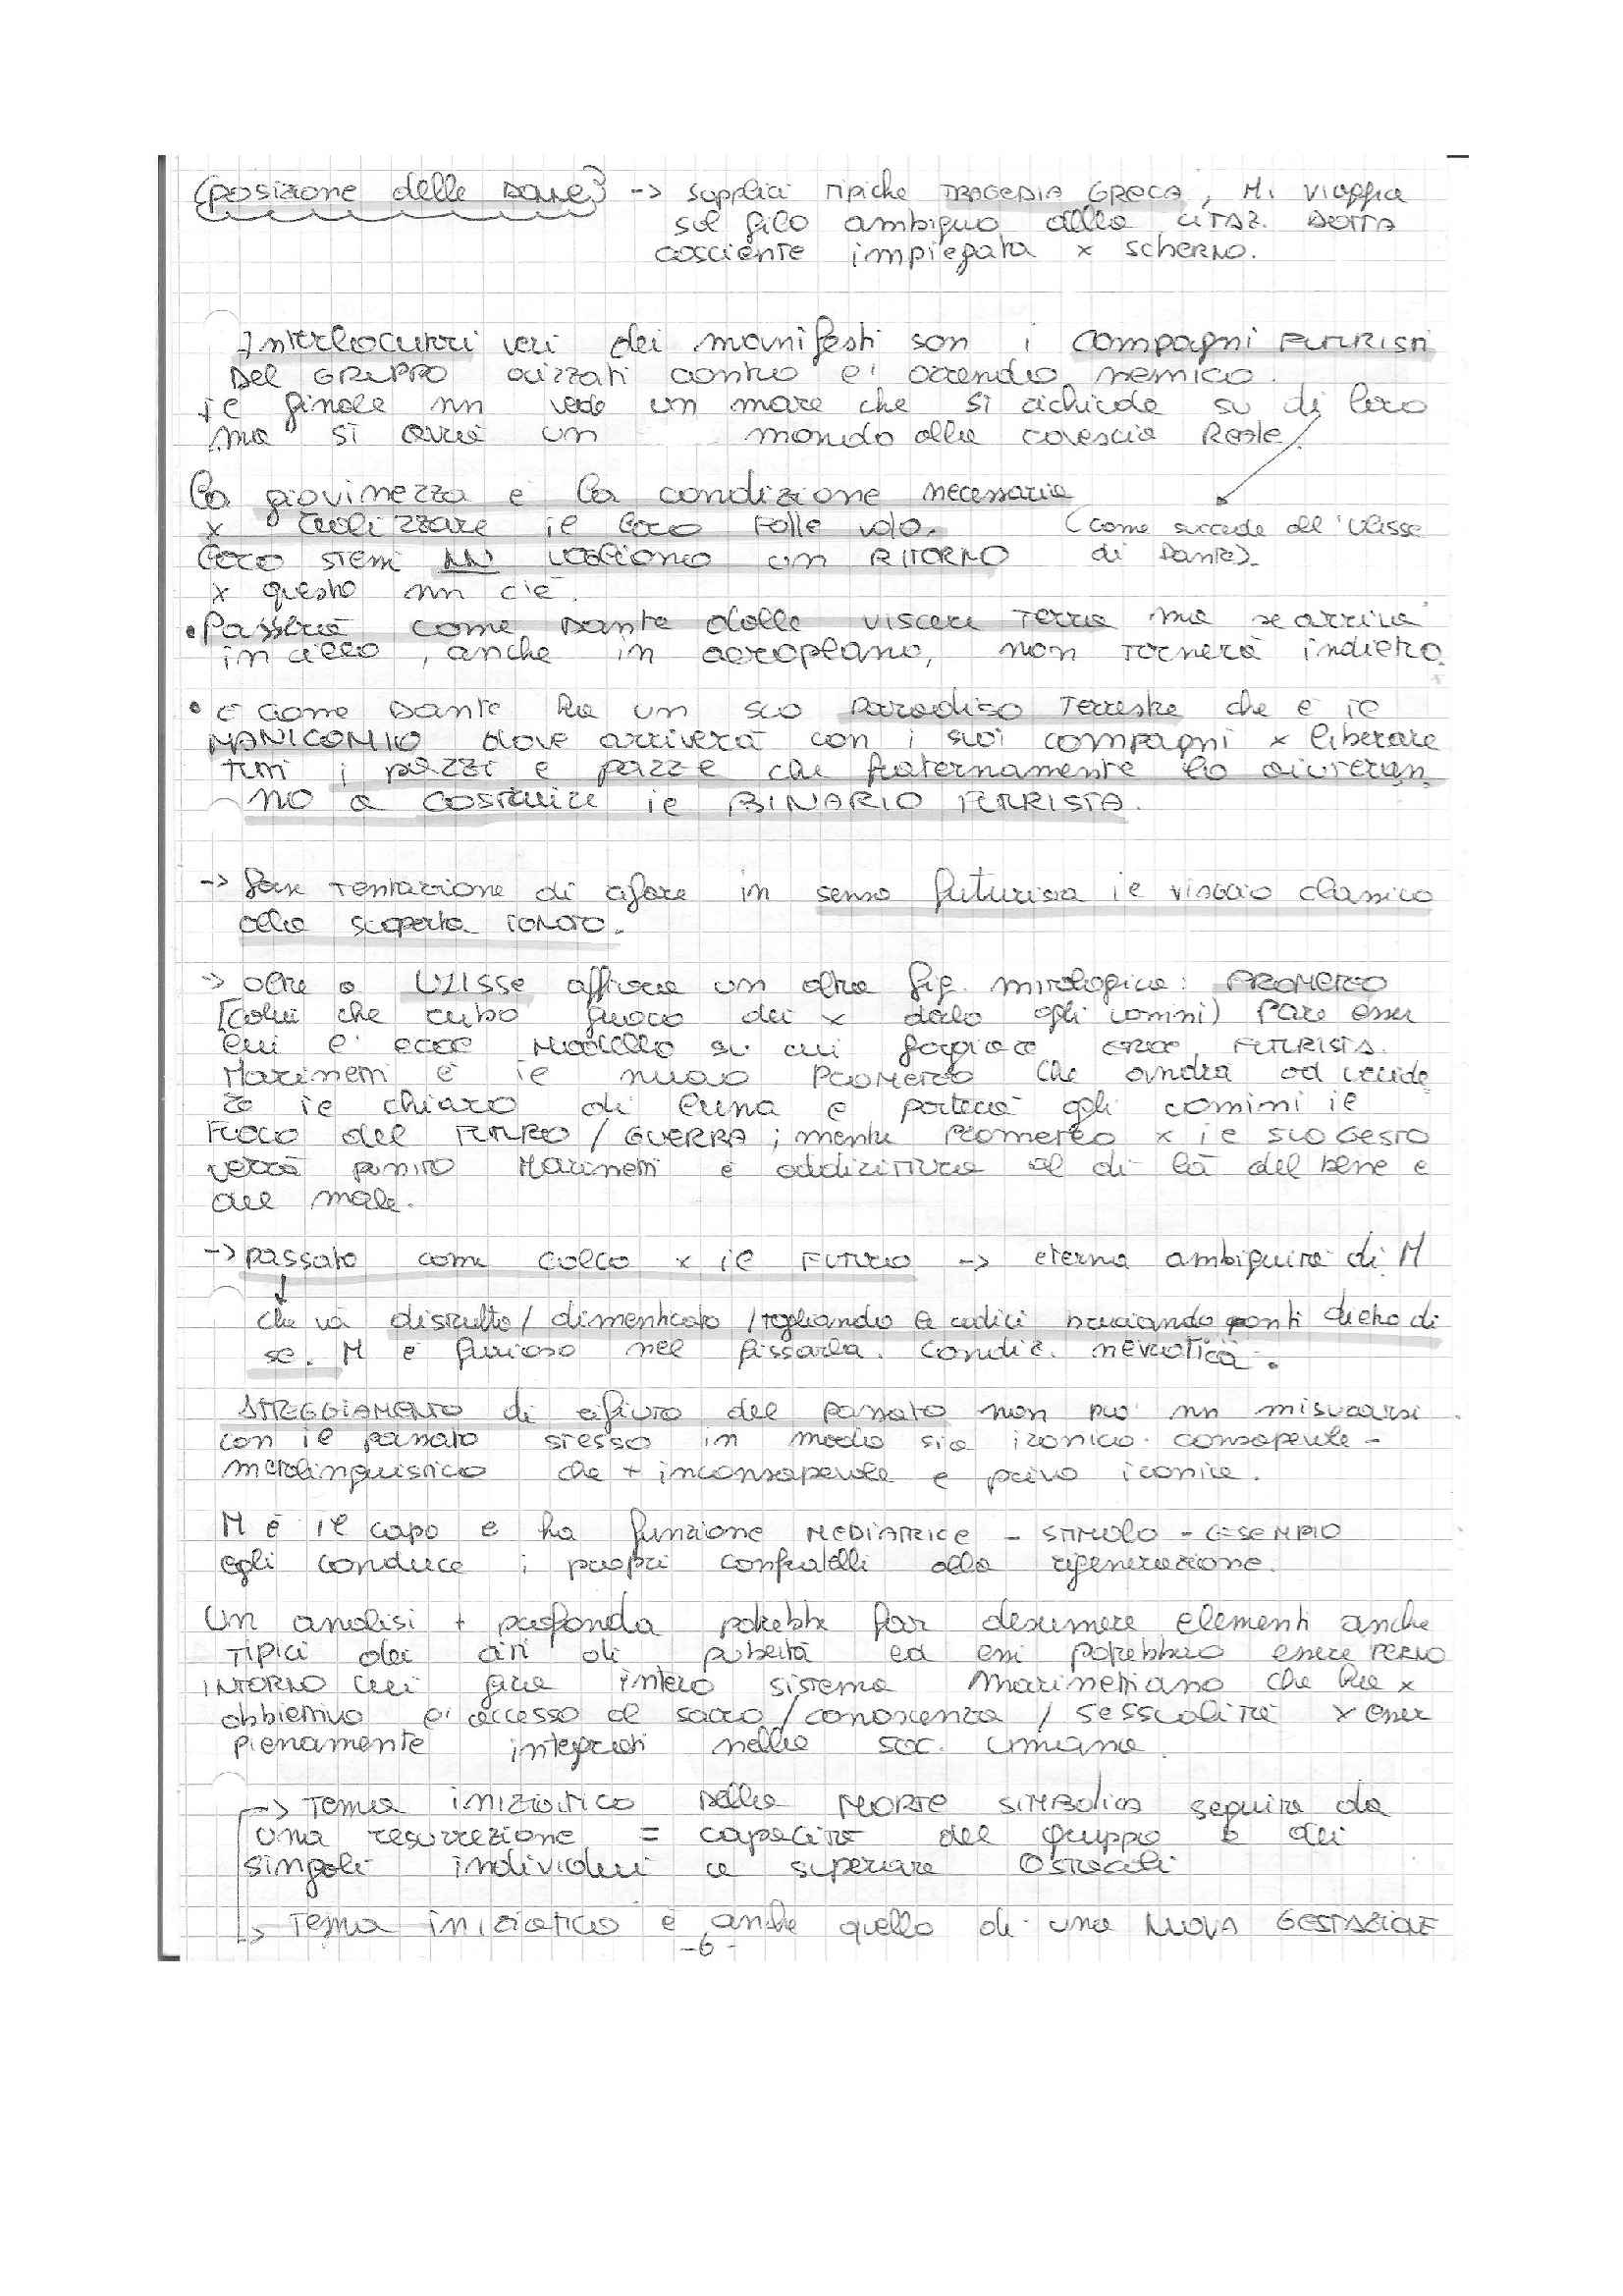 (posizione delle Dame) -> supplici tipiche TRAGEDIA GRECA, M. viaggia
sul filo ambiguo della CITAZ. DOTTA
cosciente impiegata x scherno.
Interlocutori veri dei manifesti son i compagni FUTURISTI
DEL GRUPPO aizzati contro l' orrendo nemico.
il finale nn vede un mare che si richiude su di loro
ma si avrà un mondo alla rovescia Reale.
la giovinezza è la condizione necessaria
x realizzare il loro folle volo. (come succede all'Ulisse
loro stessi NN vogliono un RITORNO di Dante).
x questo nn c'è.
• Passerà come Dante dalle viscere Terra ma se arriva
in cielo, anche in aeroplano, non tornerà indietro
• e come Dante ha un suo Paradiso Terrestre che è il
MANICOMIO dove arriverà con i suoi compagni x liberare
tutti i pazzi e pazze che fraternamente lo aiuteran
no a costruire il BINARIO FUTURISTA.
-> forte tentazione di rifare in senso futurista il viaggio classico
alla scoperta IGNOTO.
-> oltre a ULISSE affiora un altra fig. mitologica: PROMETEO
[colui che rubò fuoco dei x darlo agli uomini) Pare esser
lui l' modello su cui foggiare eroe FUTURISTA.
Marinetti è il nuovo PROMETEO che andrà ad uccide
re il chiaro di luna e porterà agli uomini il
FUOCO del FUTURO / GUERRA; mentre Prometeo x il suo GESTO
verrà punito Marinetti è addirittura al di là del bene e
del male.
-> passato come calco x il FUTURO -> eterna ambiguità di M
che va distrutto / dimenticato / tagliando le radici bruciando ponti dietro di
se. M è furioso nel fissarla. Condiz. nevrotica.
ATTEGGIAMENTO di rifiuto del passato non può nn misurarsi
con il passato stesso in modo sia ironico - consapevole -
metalinguistico che + inconsapevole e privo ironia.
M è il capo e ha funzione MEDIATRICE - STIMOLO - ESEMPIO
egli conduce i propri confratelli alla rigenerazione.
Un analisi + profonda potrebbe far desumere elementi anche
TIPICI dei riti di pubertà ed essi potrebbero essere PERNO
INTORNO cui gira intero sistema Marinettiano che ha x
obbiettivo l' accesso al sacro / conoscenza / sessualità x esser
pienamente integrati nella soc. umana.
-> Tema iniziatico della MORTE SIMBOLICA seguita da
una resurrezione = capacità del gruppo e dei
singoli individui a superare ostacoli
-> Tema iniziatico è anche quello di una NUOVA GESTAZIONE
-6-